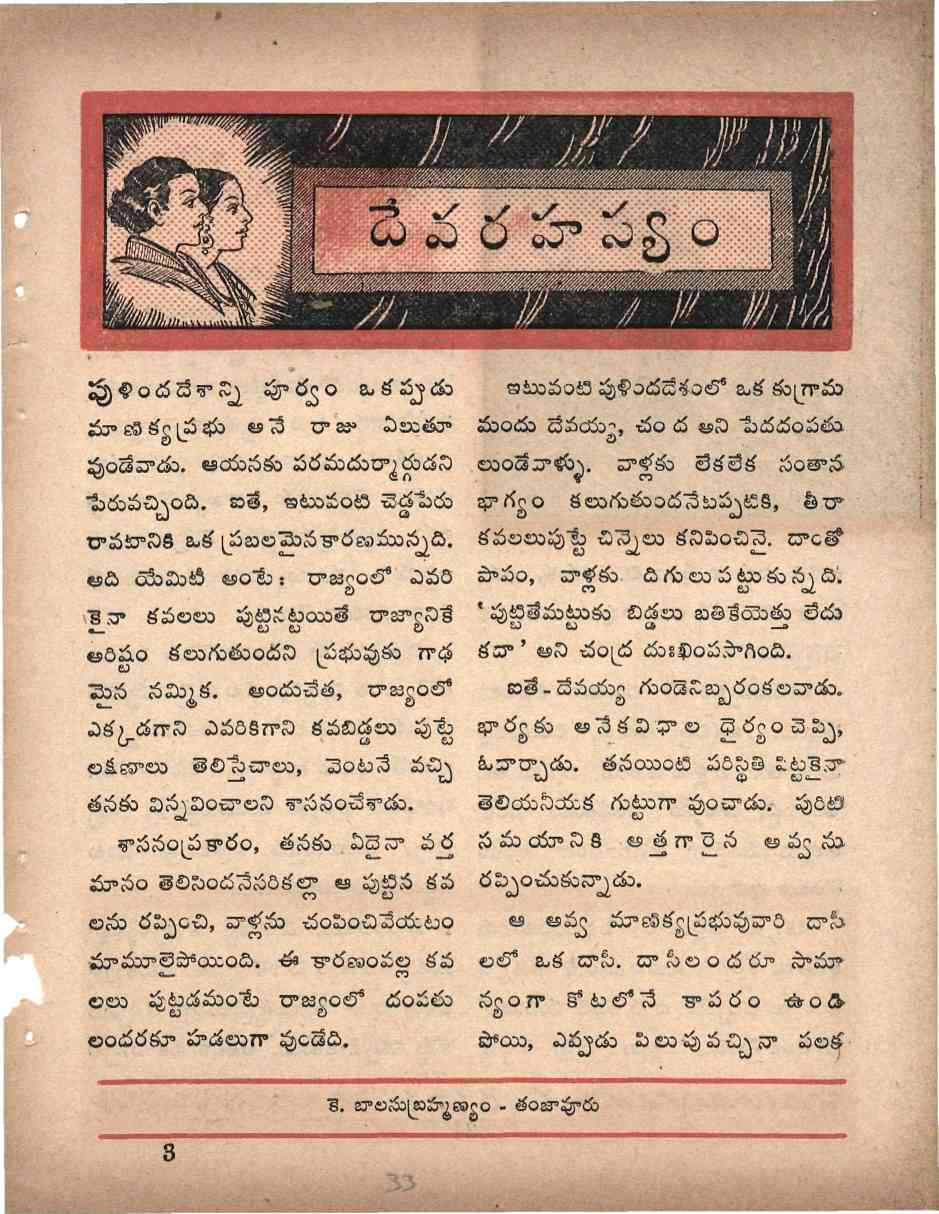 దేవరహస్యం
పుళిందదేశాన్ని పూర్వం ఒకప్పుడు
మాణిక్యప్రభు అనే రాజు ఏలుతూ
వుండేవాడు. ఆయనకు పరమదుర్మార్గుడని
పేరువచ్చింది. ఐతే, ఇటువంటి చెడ్డపేరు
రావటానికి ఒక ప్రబలమైనకారణమున్నది.
అది యేమిటీ అంటే: రాజ్యంలో ఎవరి
కైనా కవలలు పుట్టినట్టయితే రాజ్యానికే
అరిష్టం కలుగుతుందని ప్రభువుకు గాఢ
మైన నమ్మిక. అందుచేత, రాజ్యంలో
ఎక్కడగాని ఎవరికిగాని కవబిడ్డలు పుట్టే
లక్షణాలు తెలిస్తేచాలు, వెంటనే వచ్చి
తనకు విన్నవించాలని శాసనంచేశాడు.
శాసనంప్రకారం, తనకు ఏదైనా వర్త
మానం తెలిసిందనేసరికల్లా ఆ పుట్టిన కవ
లను రప్పించి, వాళ్లను చంపించివేయటం
మామూలైపోయింది. ఈ కారణంవల్ల కవ
లలు పుట్టడమంటే రాజ్యంలో దంపతు
లందరకూ హడలుగా వుండేది.
ఇటువంటి పుళిందదేశంలో ఒక కుగ్రామ
మందు దేవయ్య, చంద్ర అని పేదదంపతు
లుండేవాళ్ళు. వాళ్లకు లేకలేక సంతాన
భాగ్యం కలుగుతుందనేటప్పటికి, తీరా
కవలలుపుట్టే చిన్నెలు కనిపించినై. దాంతో
పాపం, వాళ్లకు దిగులుపట్టుకున్నది.
‘పుట్టితేమట్టుకు బిడ్డలు బతికేయెత్తు లేదు
కదా’ అని చంద్ర దుఃఖింపసాగింది.
ఐతే - దేవయ్య గుండెనిబ్బరంకలవాడు.
భార్యకు అనేకవిధాల ధైర్యంచెప్పి,
ఓదార్చాడు. తనయింటి పరిస్థితి పిట్టకైనా
తెలియనీయక గుట్టుగా వుంచాడు. పురిటి
సమయానికి అత్తగారైన అవ్వను
రప్పించుకున్నాడు.
ఆ అవ్వ మాణిక్యప్రభువువారి దాసీ
లలో ఒక దాసీ. దాసీలందరూ సామా
న్యంగా కోటలోనే కాపరం ఉండి
పోయి, ఎవ్వడు పిలుపువచ్చినా పలక
కె. బాలసుబ్రహ్మణ్యం - తంజావూరు
3
33